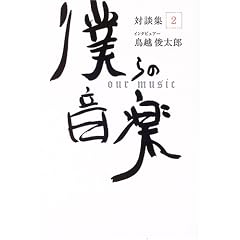 対談集 2
インタビュアー
鳥越俊太郎
僕らの
our music
音楽